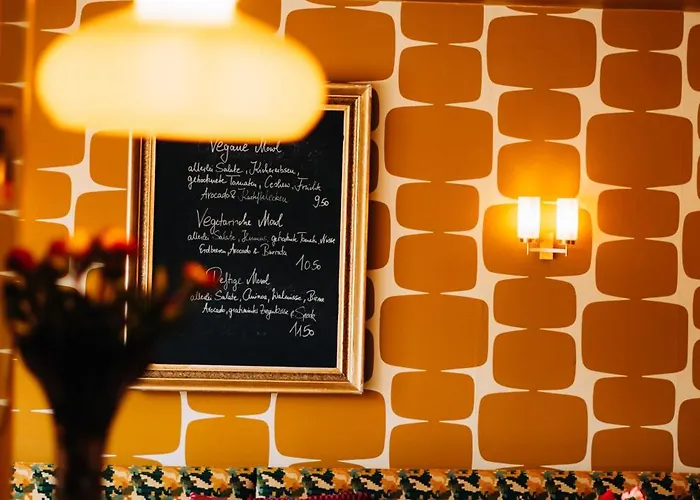 Vegane Bowl
allerlei Salate, Kichererbsen,
getrocknete Tomaten, Cashew, Früchte
Avocado &
9.50
Vegetarische Bowl
allerlei Salate, Hummus, getrocknete Tomate, Nüsse
Erdbeeren, Avocado & Burrata
10.50
Deftige Bowl
allerlei Salate, Quinoa, Walnüsse, Birne
Avocado, gratinierter Ziegenkäse & Speck
11.50